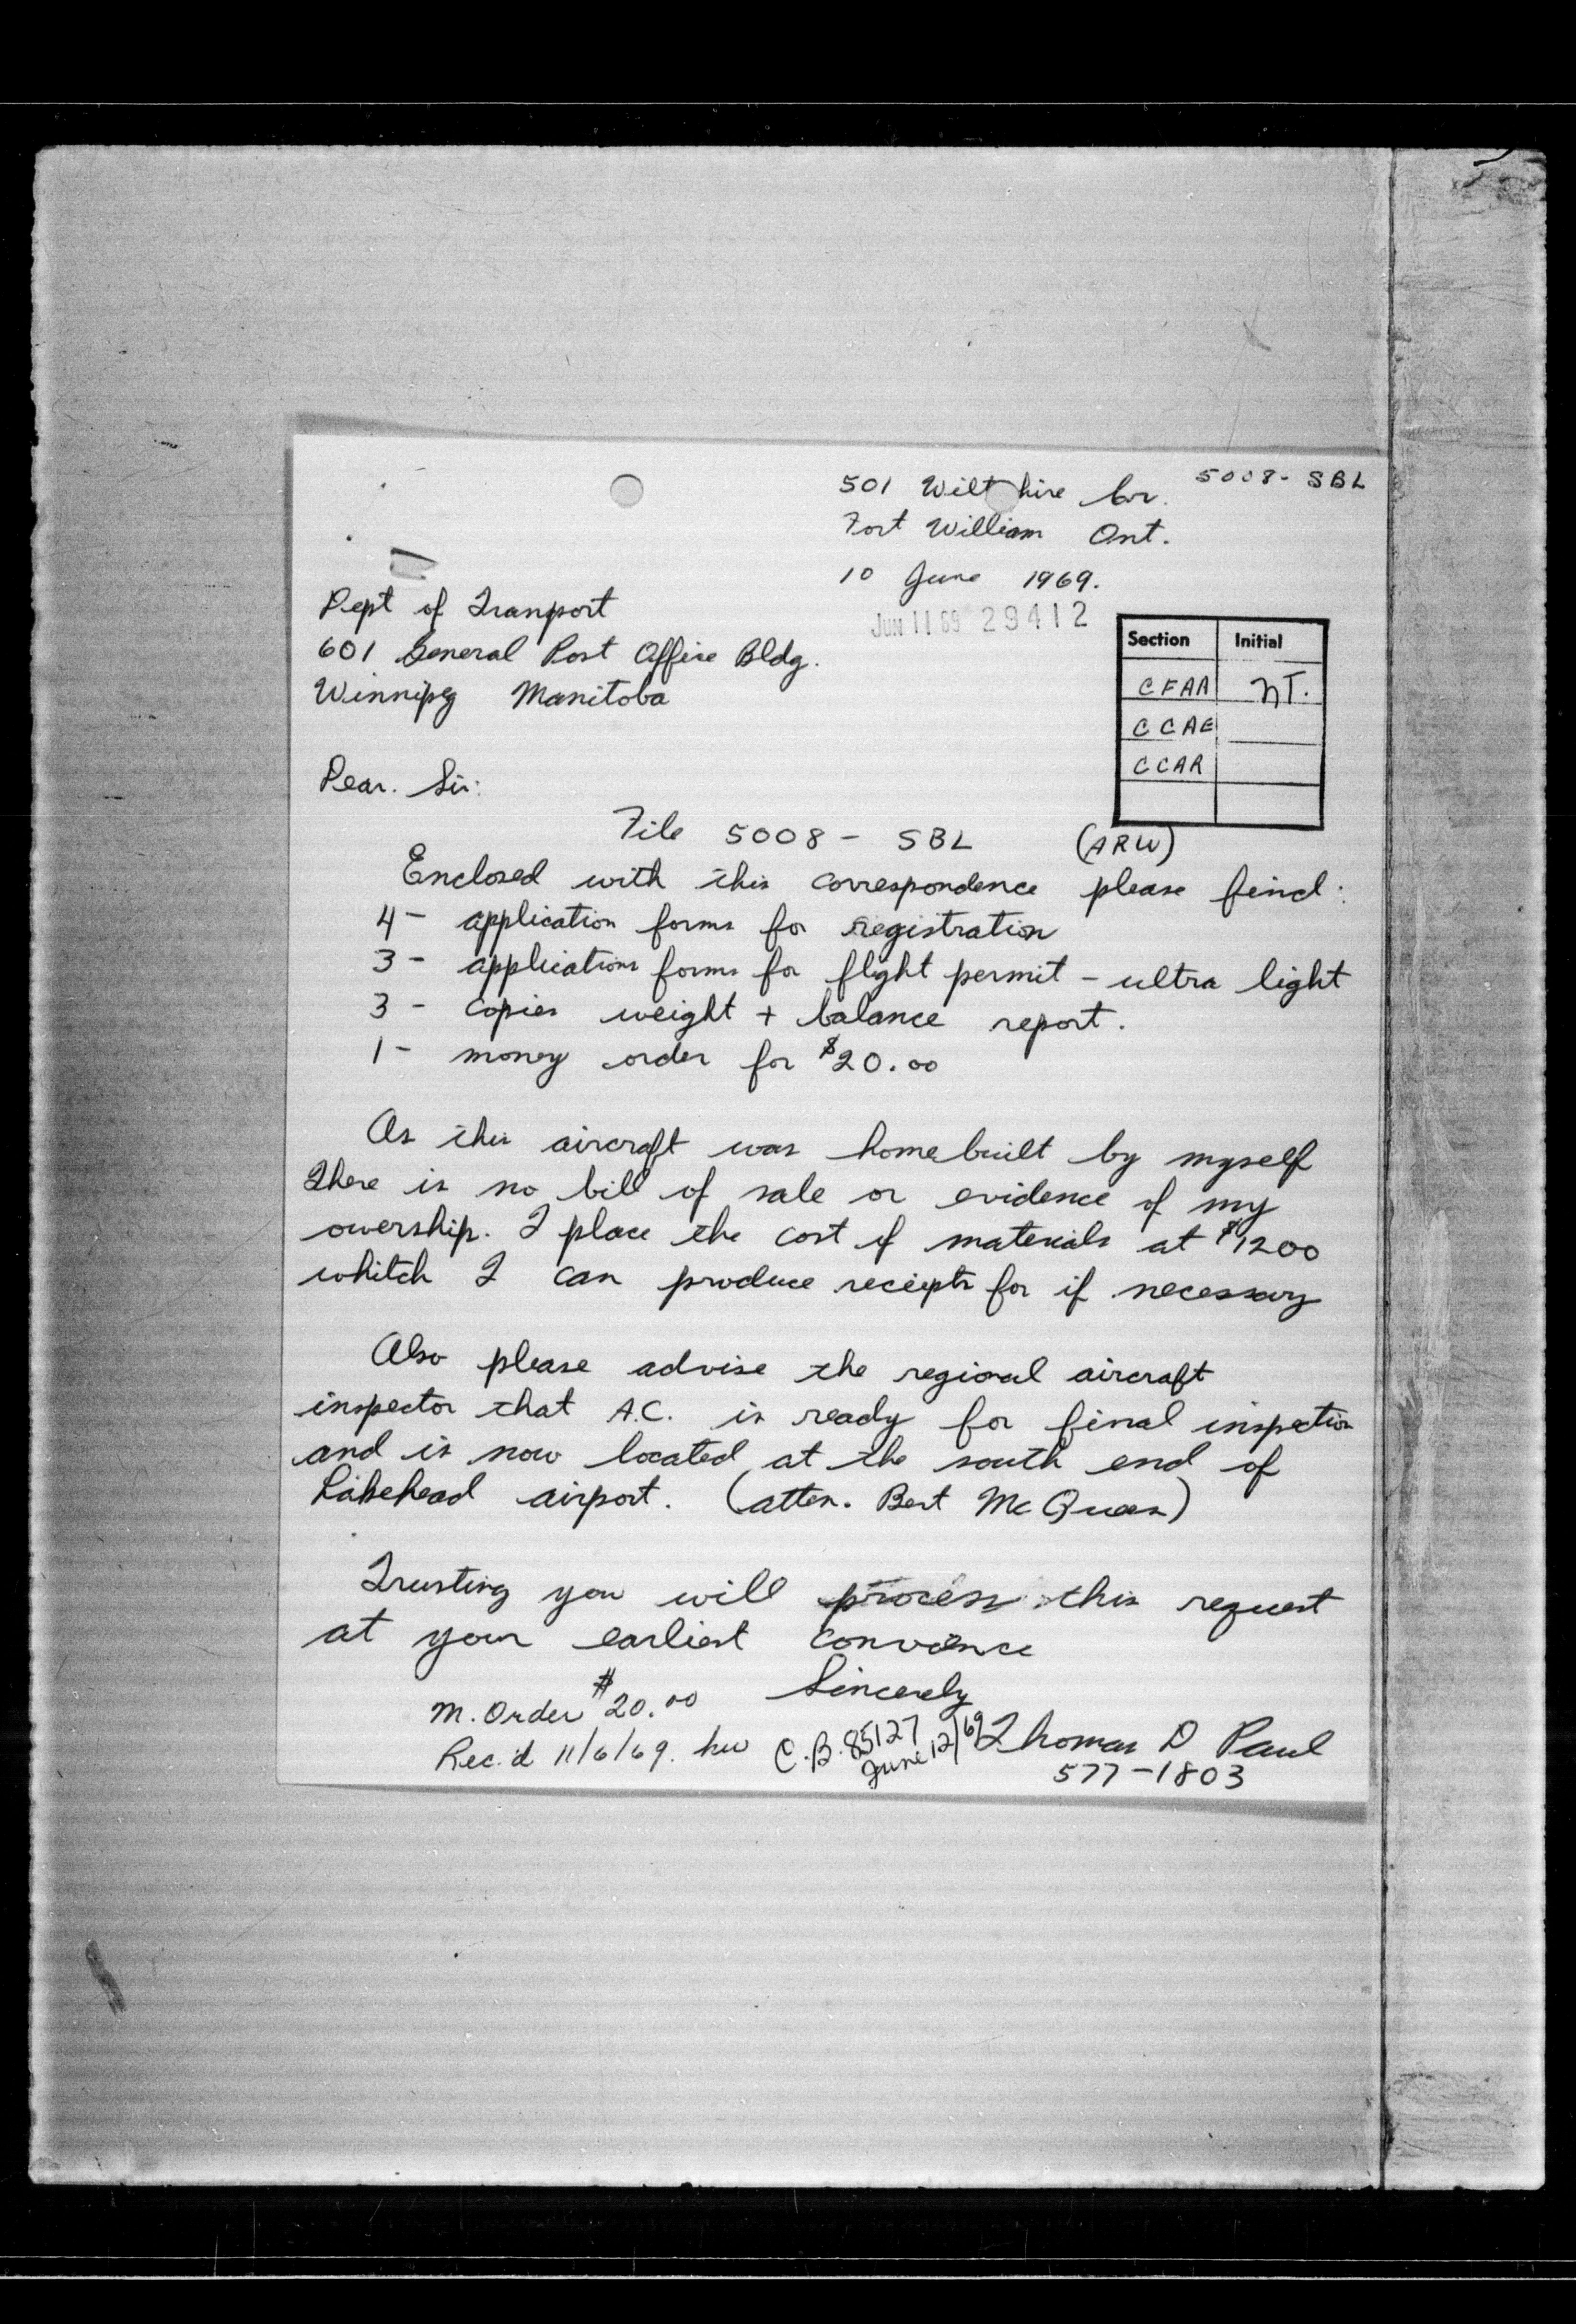 5008- SBL
501 Wiltshire Cr.
Fort William Ont.
10 June 1969.
JUN 11 69 29412
Dept of Tranport
601 General Post Office Bldg.
Winnipeg Manitoba
Section Initial
CFAA NT.
CCAE
CCAR
Dear. Sir:
File 5008 - SBL (ARW)
Enclosed with this correspondence please find:
4 - application forms for registration
3 - applications forms for flight permit - ultra light
3 - copies weight + balance report.
1 - money order for $20.00
As this aircraft was homebuilt by myself
there is no bill of sale or evidence of my
owership. I place the cost of materials at $1200
whitch I can produce reciepts for if necessary
Also please advise the regional aircraft
inspector that A.C. is ready for final inspection
and is now located at the south end of
Lakehead airport. (atten. Bert McQueen)
Trusting you will process this request
at your earliest convience
Sincerely
Thomas D Paul
577-1803
M. Order $20.00
Rec'd 11/6/69. hw
C.B. 85127
June 12/69